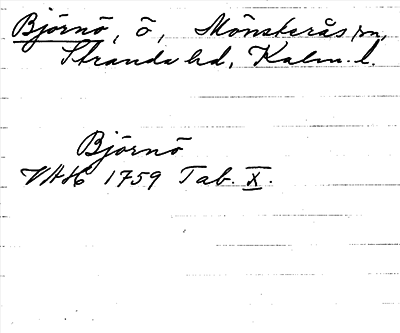 Björnö, ö, Mönsterås sn,
Stranda hd, Kalm. l.
Björnö
VAH 1759 Tab. X.